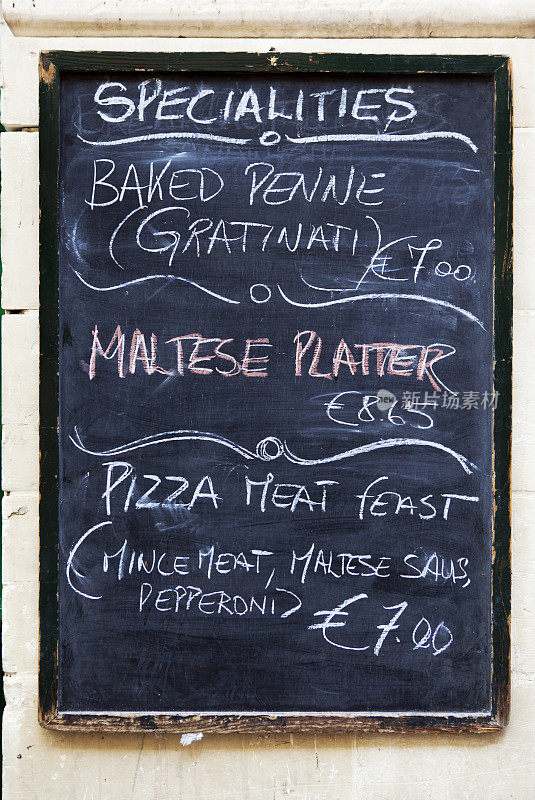 SPECIALITIES
BAKED PENNE
(GRATINATI) €7.00
MALTESE PLATTER
€8.65
PIZZA MEAT FEAST
(MINCEMEAT, MALTESE SAUS,
PEPPERONI) €7.00
new 新片场 newstudio